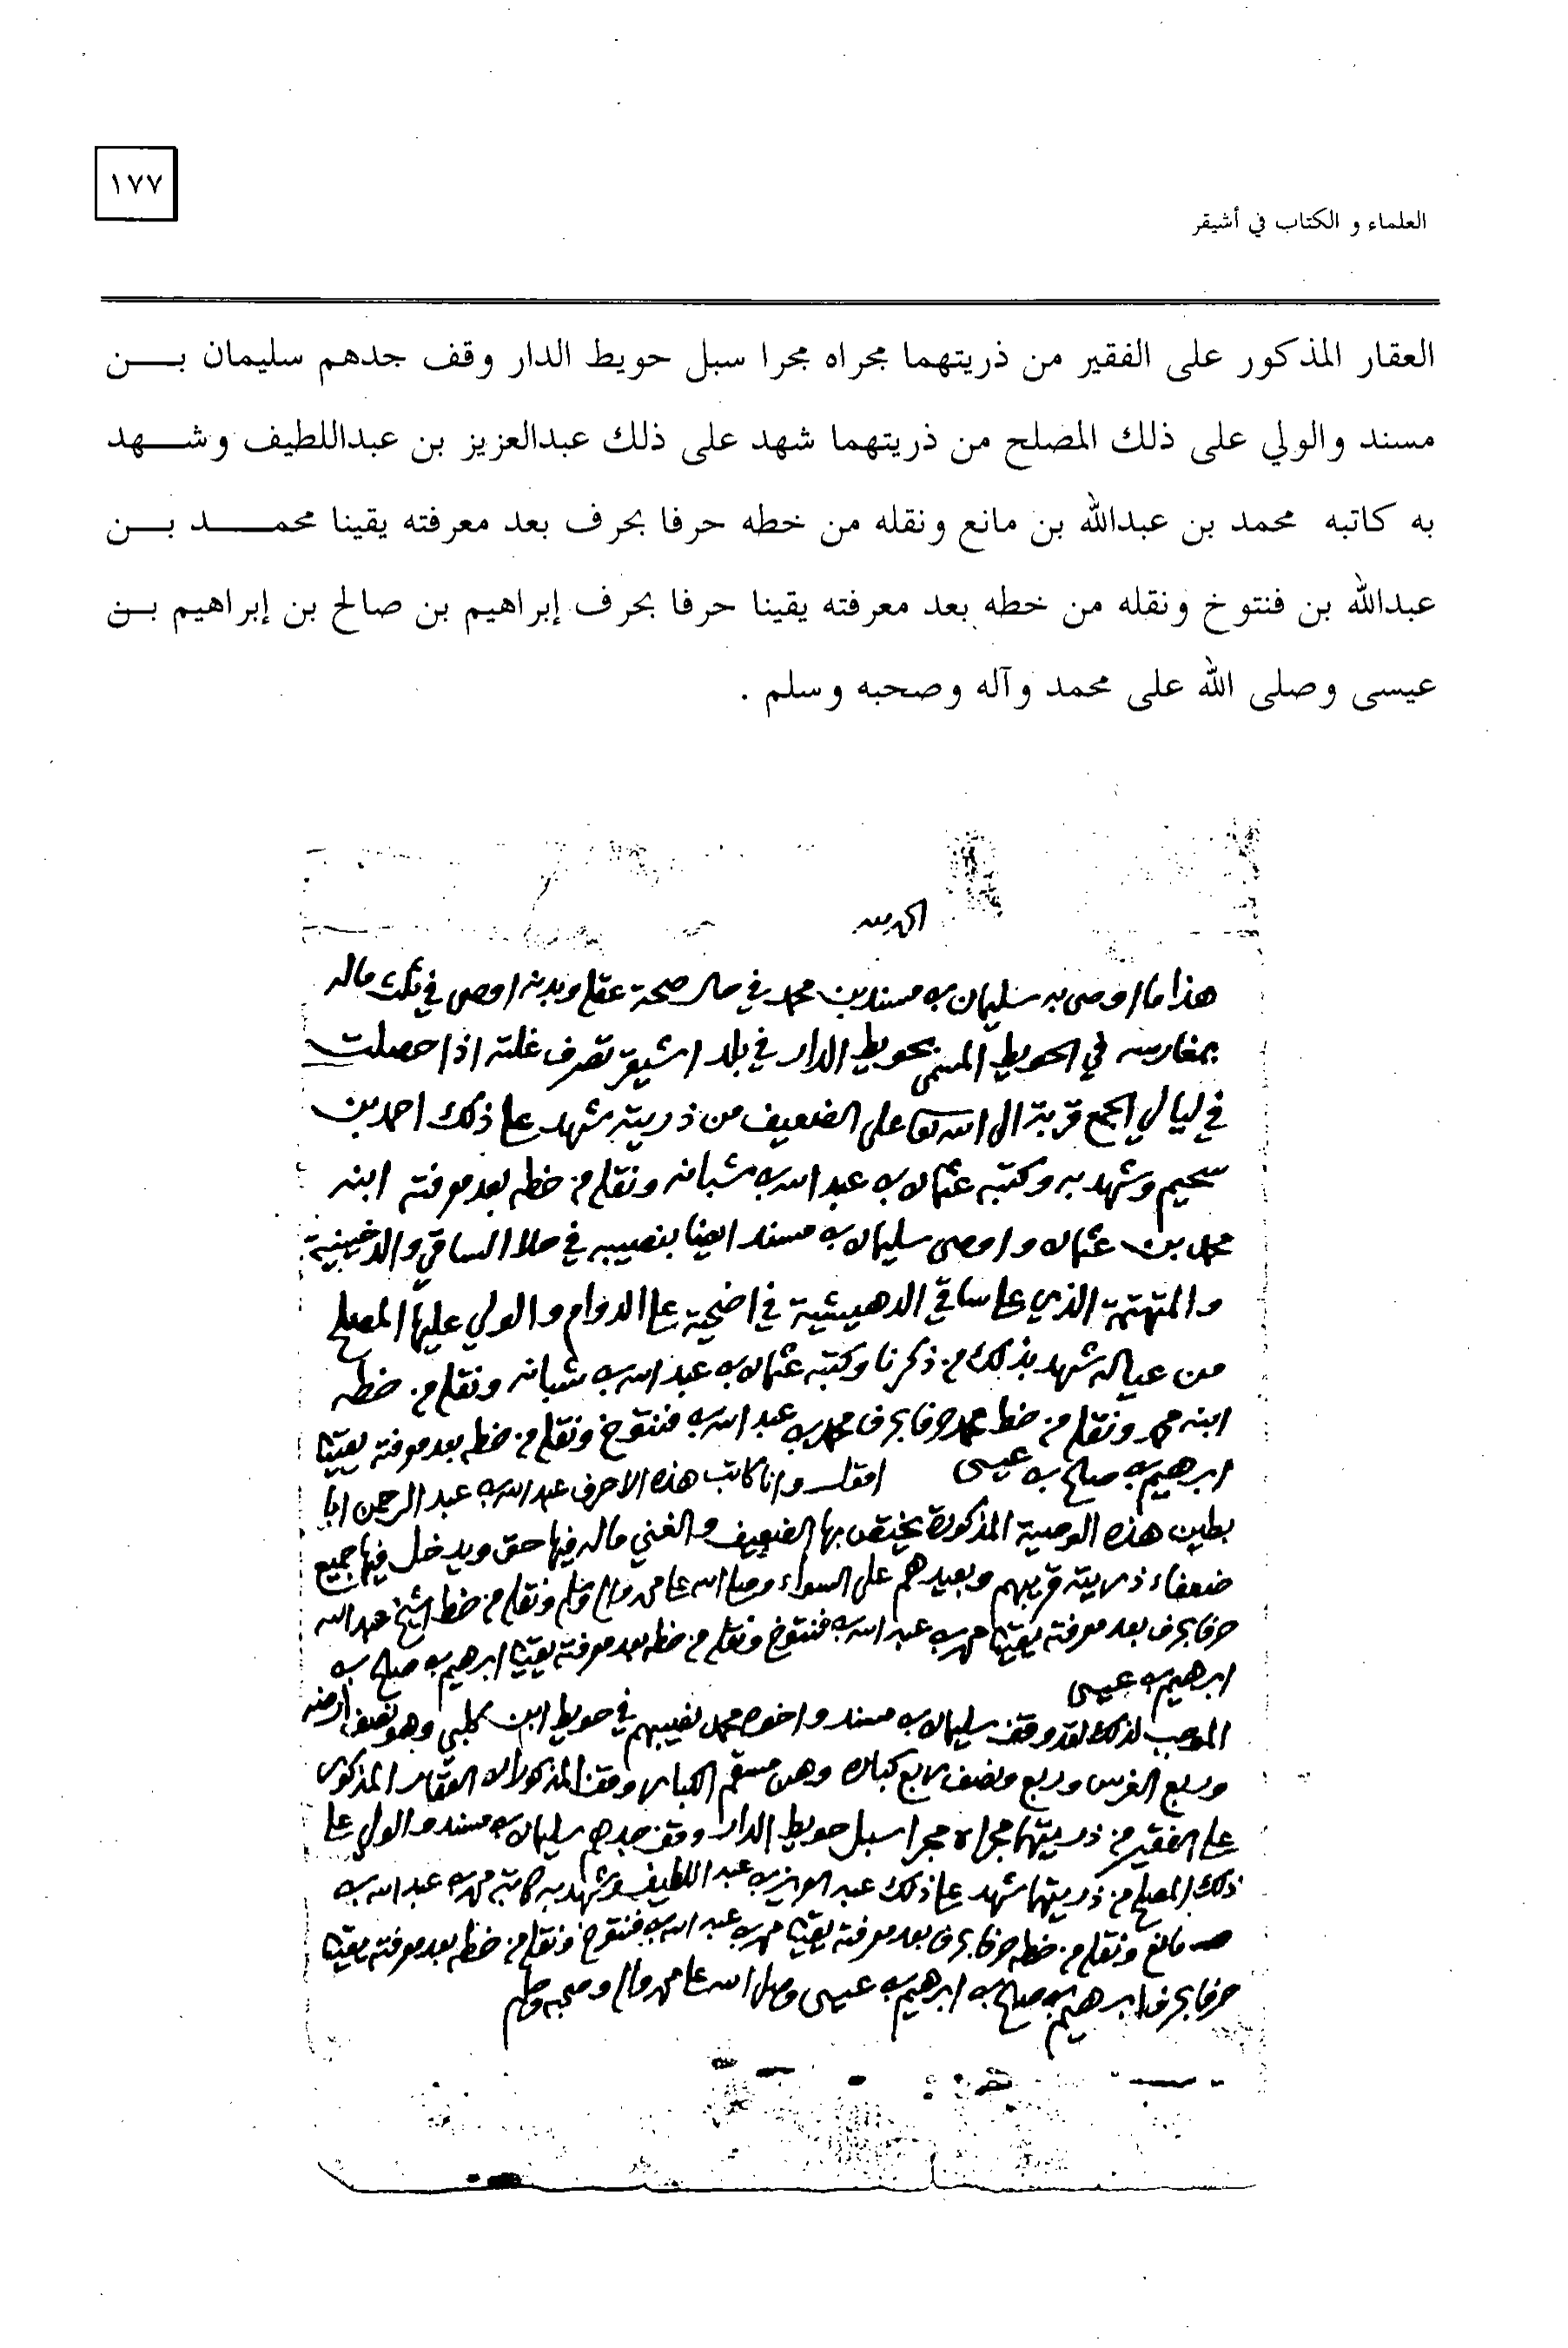 ١٧٧
العلماء و الكتاب في أشيقر
العقار المذكور على الفقير من ذريتهما مجراه مجرا سبل حويط الدار وقف جدهم سليمان بن
مسند والولي على ذلك المصلح من ذريتهما شهد على ذلك عبدالعزيز بن عبداللطيف وشهد
به كاتبه محمد بن عبدالله بن مانع ونقله من خطه حرفا بحرف بعد معرفته يقينا محمد بن
عبدالله بن فنتوخ ونقله من خطه بعد معرفته يقينا حرفا بحرف إبراهيم بن صالح بن إبراهيم بن
عيسى وصلى الله على محمد وآله وصحبه وسلم .
الحمد لله
هذا ما اوصى به سليمان بن مسند بن محمد في حال صحة عقله وبدنه اوصى في ثلث ماله
بمغارسه في الحويط المسمى بحويط الدار في بلد اشيقر تصرف غلته اذا حصلت
في ليالي الجمع قربة الى الله تعا على الضعيف من ذريته شهد على ذلك احمد بن
سحيم وشهد به وكتبه عثمان بن عبد الله بن شبانه ونقله من خطه بعد معرفته ابنه
محمد بن عثمان واوصى سليمان بن مسند ايضا بنصيبه في ملا الساقي والدخينية
والمتهتمة الذي على ساقي الدهيشية في اضحية على الدوام والولي عليها المصلح
من عياله شهد بذلك من ذكرنا وكتبه عثمان بن عبد الله بن شبانه ونقله من خطه
ابنه محمد ونقله من خط محمد حرفا بحرف محمد بن عبد الله بن فنتوخ ونقله من خطه بعد معرفته يقينا
ابرهيم بن صالح بن عيسى اقول وانا كاتب هذه الاحرف عبد الله بن عبد الرحمن ابا
بطين هذه الوصية المذكورة يختص بها الضعيف والغني ماله فيها حق ويدخل فيها جميع
ضعفاء ذريته قريبهم وبعيدهم على السواء وصلى الله على محمد واله وسلم ونقله من خط الشيخ عبد الله
حرفا بحرف بعد معرفته يقينا محمد بن عبد الله بن فنتوخ ونقله من خطه بعد معرفته يقينا ابرهيم بن صالح بن
ابرهيم بن عيسى
الموجب لذلك لقد وقف سليمان بن مسند واخوه محمد نصيبهم في حويط ابن كلبي وهو نصف ارضه
وربع الغرس وربع ونصف ربع كباره وهن مسقم الكبار وقفا المذكوران العقار المذكور
على الفقير من ذريتهما مجراه مجرا سبل حويط الدار وقف جدهم سليمان بن مسند والولي على
ذلك المصلح من ذريتهما شهد على ذلك عبد العزيز بن عبد اللطيف وشهد به كاتبه محمد بن عبد الله بن
مانع ونقله من خطه حرفا بحرف بعد معرفته يقينا محمد بن عبد الله بن فنتوخ ونقله من خطه بعد معرفته يقينا
حرفا بحرف ابرهيم بن صالح بن ابرهيم بن عيسى وصلى الله على محمد واله وصحبه وسلم